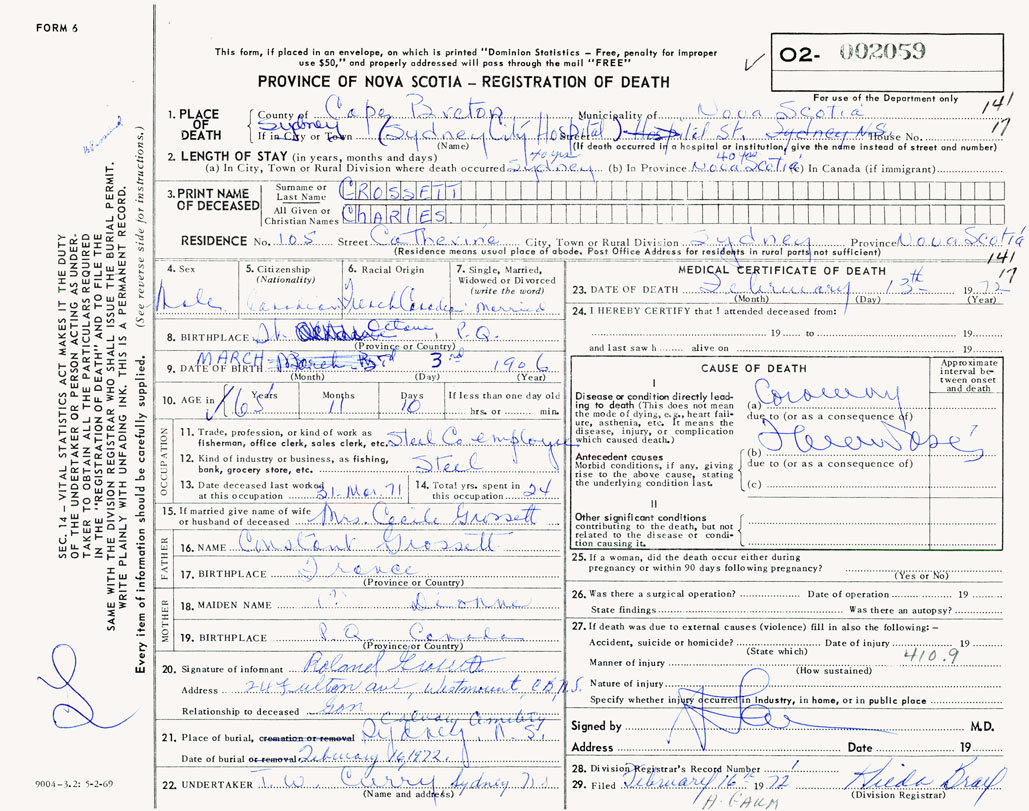 FORM 6
This form, if placed in an envelope, on which is printed "Dominion Statistics – Free, penalty for improper
use $50," and properly addressed will pass through the mail "FREE"
PROVINCE OF NOVA SCOTIA – REGISTRATION OF DEATH
O2- 002059
For use of the Department only
141
17
1. PLACE OF DEATH
County of Cape Breton Municipality of Nova Scotia
Sydney (Sydney City Hospital) Hospital St. Sydney N.S.
If in City or Town (Name) Street House No.
(If death occurred in a hospital or institution, give the name instead of street and number)
2. LENGTH OF STAY (in years, months and days) 40 yrs 40 yrs
(a) In City, Town or Rural Division where death occurred Sydney (b) In Province Nova Scotia (c) In Canada (if immigrant)
3. PRINT NAME OF DECEASED
Surname or Last Name GROSSETT
All Given or Christian Names ChARLES
RESIDENCE No. 105 Street Catherine City, Town or Rural Division Sydney Province Nova Scotia
(Residence means usual place of abode. Post Office Address for residents in rural parts not sufficient)
141
17
4. Sex Male
5. Citizenship (Nationality) Canadian
6. Racial Origin French Canadian
7. Single, Married, Widowed or Divorced (write the word) Married
8. BIRTHPLACE St. Octave, P.Q.
(Province or Country)
9. DATE OF BIRTH MARCH 3rd 1906
(Month) (Day) (Year)
10. AGE in Years 65 Months 11 Days 10 If less than one day old
hrs. or min.
OCCUPATION
11. Trade, profession, or kind of work as fisherman, office clerk, sales clerk, etc. Steel Co employee
12. Kind of industry or business, as fishing, bank, grocery store, etc. Steel
13. Date deceased last worked at this occupation 31. Mar. 71
14. Total yrs. spent in this occupation 24
15. If married give name of wife or husband of deceased Mrs. Cecile Grossett
FATHER
16. NAME Constant Grossett
17. BIRTHPLACE France
(Province or Country)
MOTHER
18. MAIDEN NAME (?) Dionne
19. BIRTHPLACE P.Q. Canada
(Province or Country)
20. Signature of informant Roland Grossett
Address 24 Fulton ave, Westmount, C.B, N.S.
Relationship to deceased Son
Calvary Cemetery
21. Place of burial, cremation or removal Sydney, N.S.
Date of burial or removal February 16, 1972
22. UNDERTAKER T. W. Curry Sydney N.S
(Name and address)
MEDICAL CERTIFICATE OF DEATH
23. DATE OF DEATH February 13th 1972
(Month) (Day) (Year)
24. I HEREBY CERTIFY that I attended deceased from:
19 to 19
and last saw h alive on 19
CAUSE OF DEATH
Approximate interval between onset and death
I
Disease or condition directly leading to death (This does not mean the mode of dying, e.g., heart failure, asthenia, etc. It means the disease, injury, or complication which caused death.)
(a) Coronary
due to (or as a consequence of)
Antecedent causes
Morbid conditions, if any, giving rise to the above cause, stating the underlying condition last.
(b)
due to (or as a consequence of)
(c)
II
Other significant conditions contributing to the death, but not related to the disease or condition causing it.
25. If a woman, did the death occur either during
pregnancy or within 90 days following pregnancy?
(Yes or No)
26. Was there a surgical operation? Date of operation 19
State findings Was there an autopsy?
27. If death was due to external causes (violence) fill in also the following: –
Accident, suicide or homicide? Date of injury 19
(State which) 410.9
Manner of injury
(How sustained)
Nature of injury
Specify whether injury occurred in industry, in home, or in public place
Signed by M.D.
Address Date 19
28. Division Registrar's Record Number 1
29. Filed February 16th 1972
(Division Registrar)
SEC. 14 – VITAL STATISTICS ACT MAKES IT THE DUTY
OF THE UNDERTAKER OR PERSON ACTING AS UNDER-
TAKER TO OBTAIN ALL THE PARTICULARS REQUIRED
IN THE "REGISTRATION OF DEATH" AND TO FILE THE
SAME WITH THE DIVISION REGISTRAR WHO SHALL ISSUE THE BURIAL PERMIT.
WRITE PLAINLY WITH UNFADING INK. THIS IS A PERMANENT RECORD.
Every item of information should be carefully supplied. (See reverse side for instructions.)
9004-3.2: 5-2-69